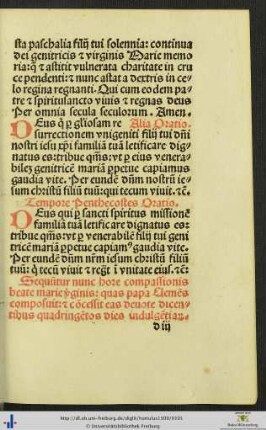 sta paschalia filij tui solennia: continua
dei genitricis ⁊ virginis Marie memo
ria: q̄ ⁊ astitit vulnerata charitate in cru
ce pendenti: ⁊ nunc astat a dextris in ce-
lo regina regnanti. Qui cum eodem pa-
tre ⁊ spiritusancto viuis ⁊ regnas deus
Per omnia secula seculorum. Amen.
DEus q̄ p̱ gliosam re Alia Oratio.
surrectionem vnigeniti filij tui dn̄i
nostri iesu xp̄i familiā tuā letificare dig-
natus es: tribue qm̄s: vt p̱ eius venera-
bilē genitricē mariā p̱petue capiamus
gaudia vite. Per eundē dūm nostrū ie-
sum christū filiū tuū: qui tecum viuit. ⁊c̄.
Tempore Penthecostes Oratio.
DEus qui p̱ sancti spiritus missionē
familiā tuā letificare dignatus es:
tribue qm̄s: vt p̱ venerabilē filij tui geni
tricē mariā p̱petue capiam⁹ gaudia vite.
Per eundē dūm nr̄m iesum christū filiū
tuū: q̄ tecū viuit ⁊ regt̄ ī vnitate eius. ⁊c̄:
Sequūtur nunc hore compassionis
beate marie ꝟginis: quas papa Clemēs
composuit: ⁊ cōcessit eas deuote dicen-
tibus quadringētos dies indulgētiaꝝ.
d iij
http://dl.ub.uni-freiburg.de/diglit/hortulus1509/0101
© Universitätsbibliothek Freiburg
Baden-Württemberg